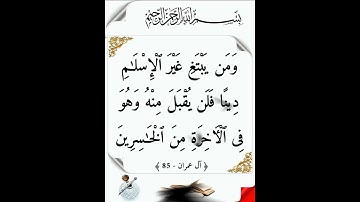 بِسْمِ اللَّهِ الرَّحْمَٰنِ الرَّحِيمِ
وَمَن يَبْتَغِ غَيْرَ ٱلْإِسْلَٰمِ
دِينًا فَلَن يُقْبَلَ مِنْهُ وَهُوَ
فِى ٱلْءَاخِرَةِ مِنَ ٱلْخَٰسِرِينَ
﴿ آل عمران - 85 ﴾